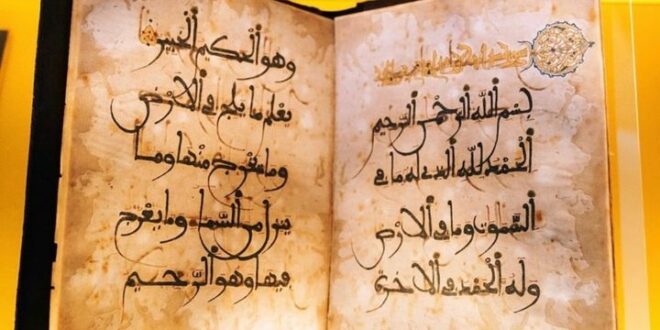 بسم الله الرحمن الرحيم
الحمد لله الذي له ما في
السموت وما في الارض
وله الحمد في الاخرة
وهو الحكيم الخبير
يعلم ما يلج في الارض
وما يخرج منها وما
ينزل من السماء وما يعرج
فيها وهو الرحيم